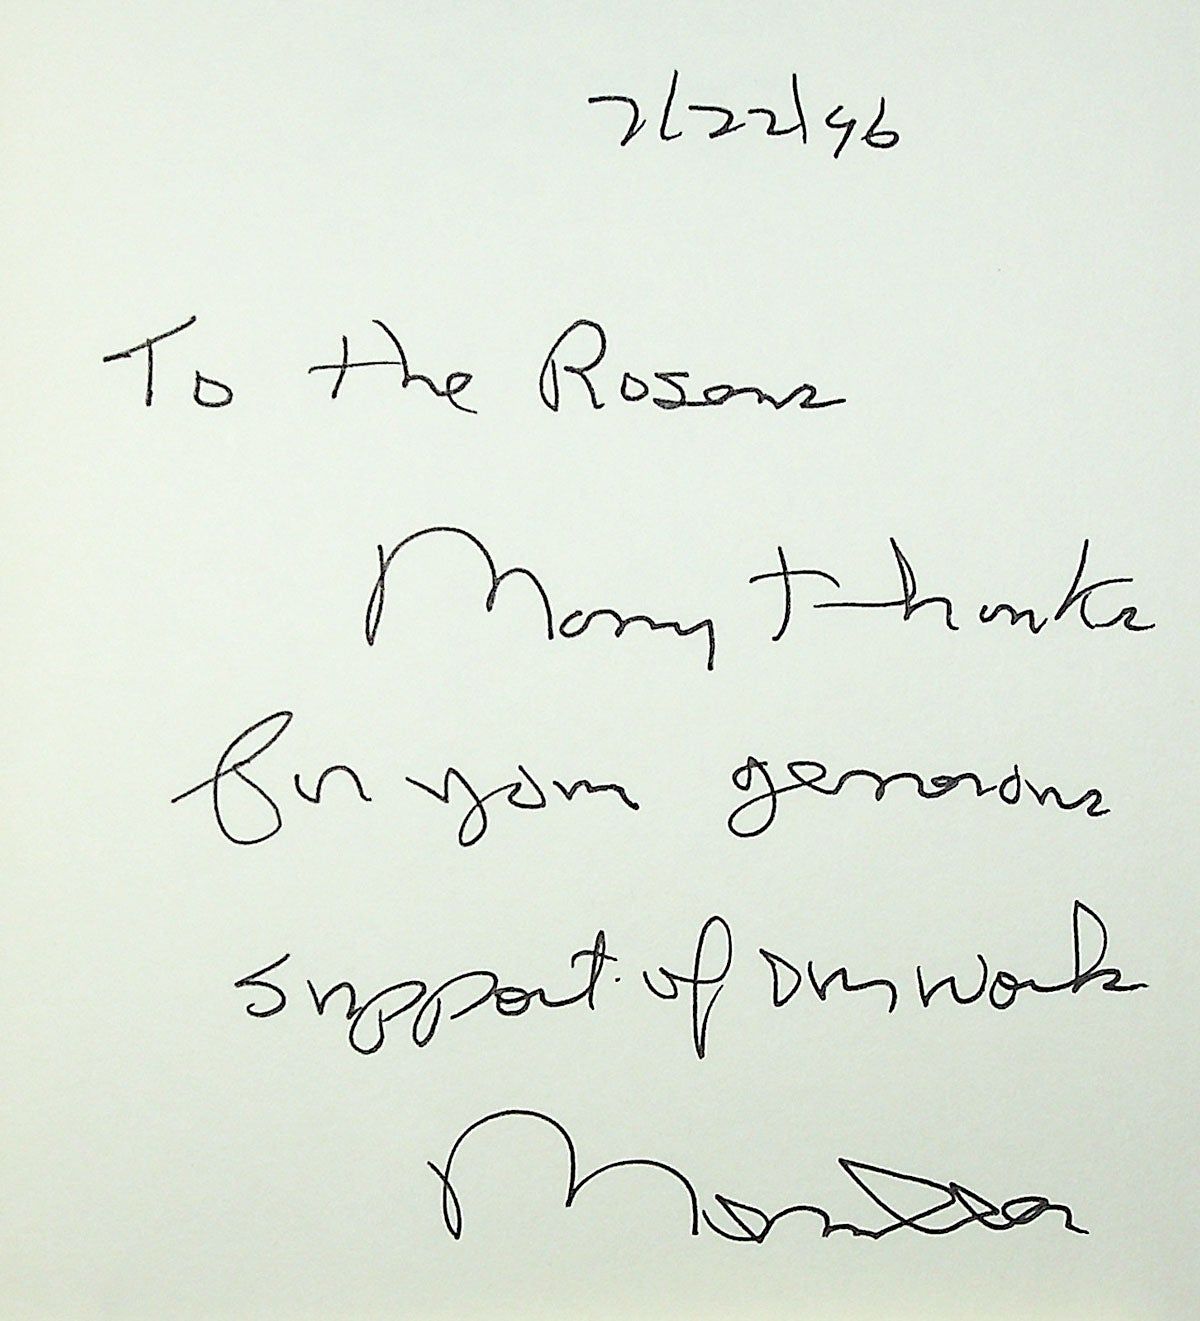 7/22/96
To the Rosens
Many thanks
for your generous
support of my work